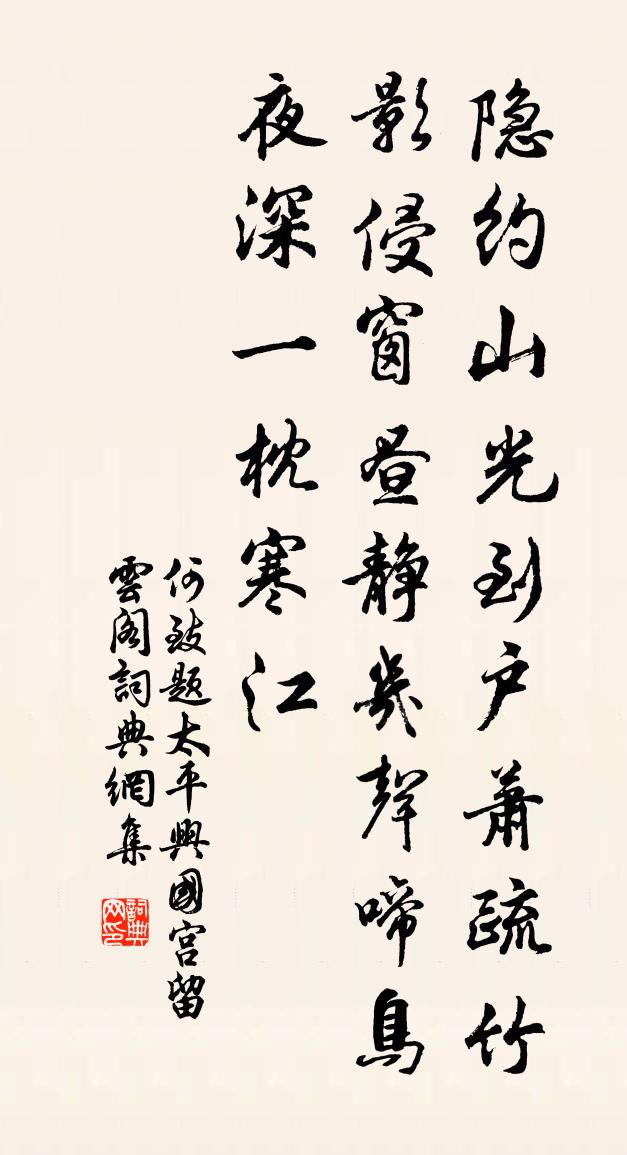 隐约山光到户萧疏竹
影侵窗昼静几声啼鳥
夜深一枕寒江
何致题太平興國宫留
雲阁詞典網集
詞典网印